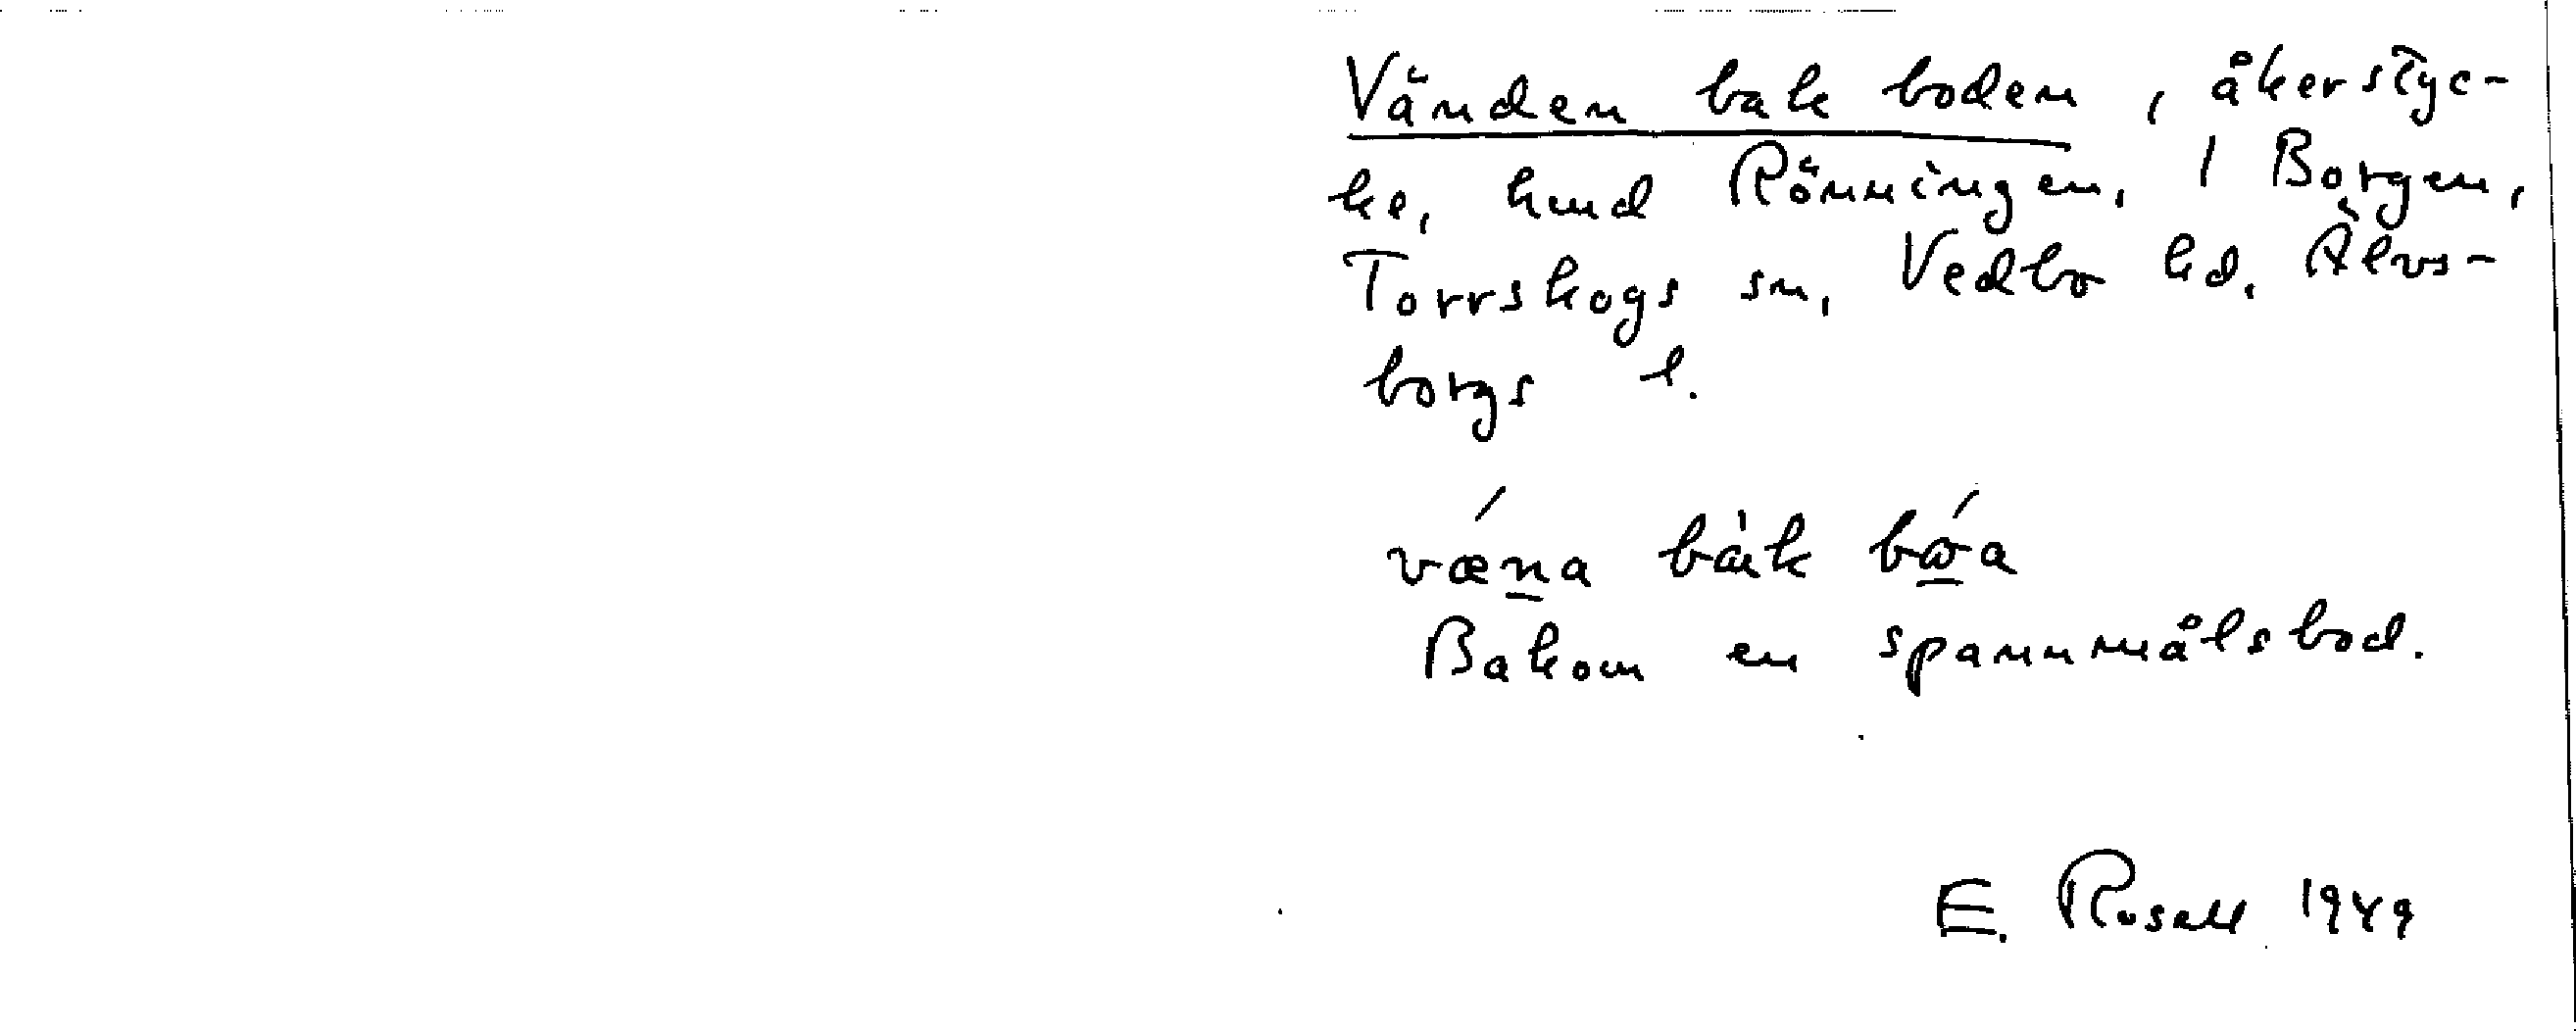 Vänden bak boden, åkerstyc-
ke, hmd Rönningen, 1 Borgen,
Torrskogs sn, Vedbo hd, Älvs-
borgs l.
væ´na bàk bɷ´a
Bakom en spannmålsbod.
E. Rosell 1949